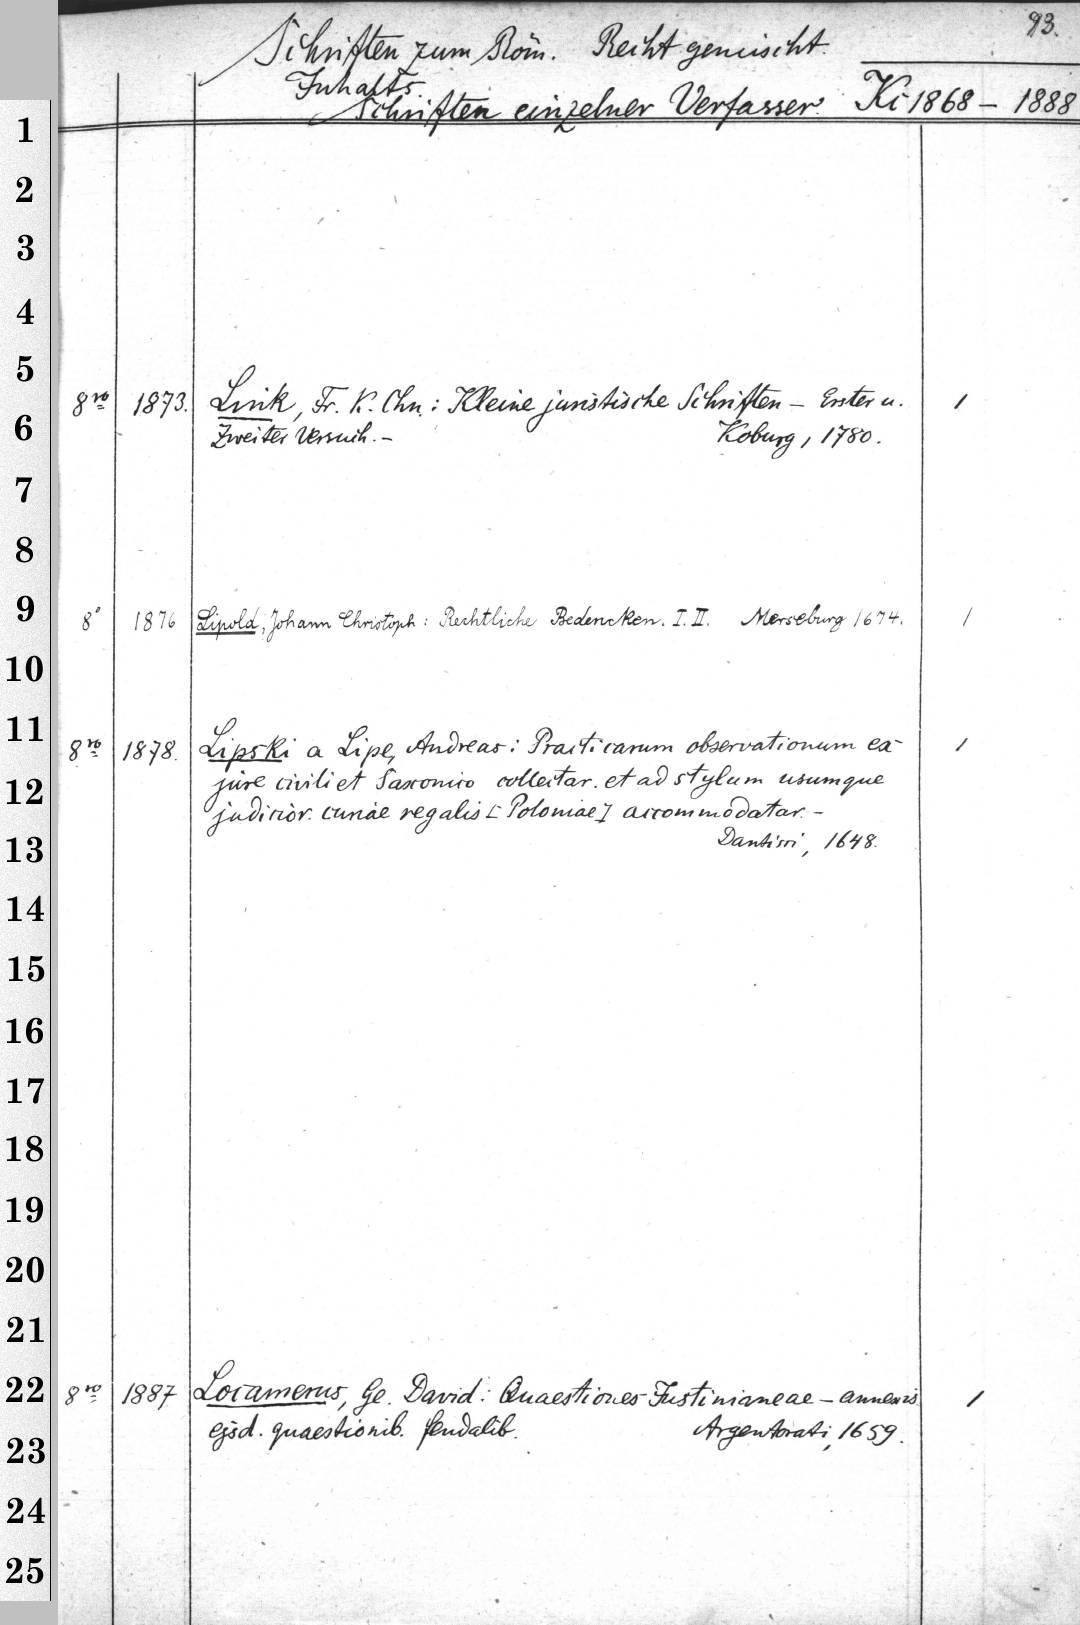 93.
Schriften zum Röm. Recht gemischt.
Inhalts.
Schriften einzelner Verfasser. Ki 1868 – 1888
1
2
3
4
5
8vo 1873. Link, Fr. K. Chn.: Kleine juristische Schriften – Erster u. 1
6
Zweiter Versuch. – Koburg, 1780.
7
8
9
8° 1876 Lipold, Johann Christoph: Rechtliche Bedencken. I. II. Merseburg 1674. 1
10
11
8vo 1878. Lipski a Lipe, Andreas: Practicarum observationum ex 1
12
jure civili et Saxonico collectar. et ad stylum usumque
judicior. curiae regalis [Poloniae] accommodatar. –
13
Dantisci, 1648.
14
15
16
17
18
19
20
21
22
8vo 1887 Locamerus, Ge. David: Quaestiones Justinianeae – annexis 1
ejsd. quaestionib. feudalib. Argentorati, 1659.
23
24
25